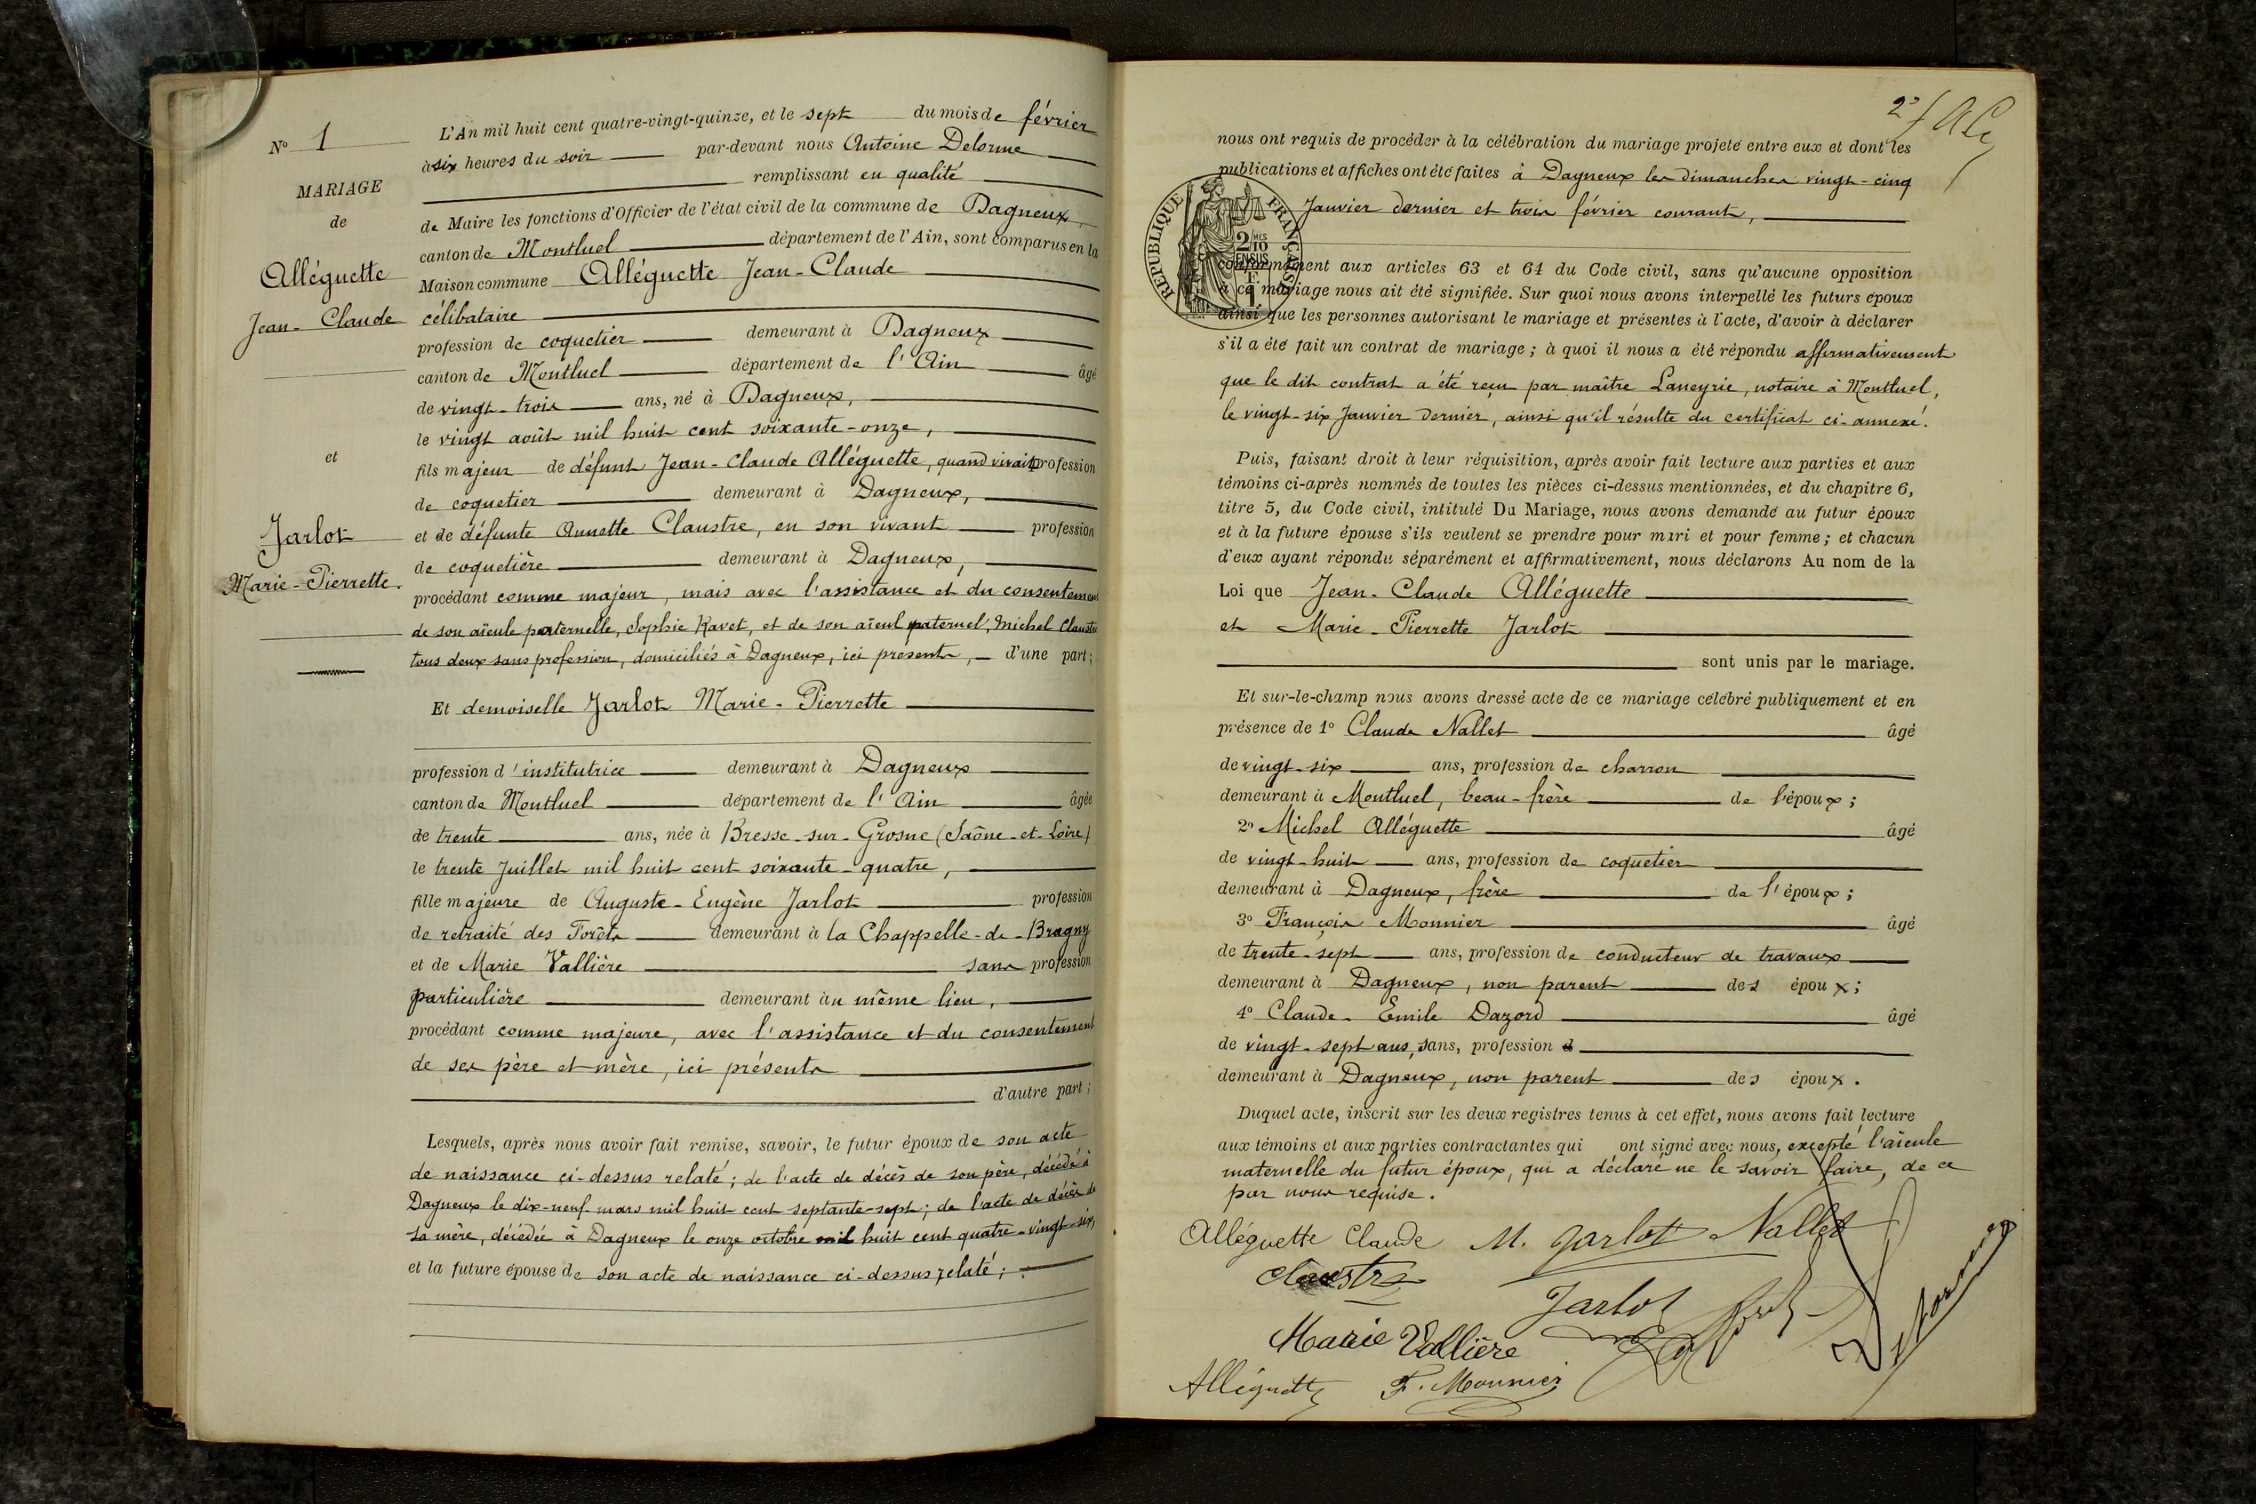 N° 1
MARIAGE
de
Alléguette
Jean-Claude
et
Jarlot
Marie-Pierrette.
L'An mil huit cent quatre-vingt-quinze, et le sept du mois de février
à six heures du soir par-devant nous Antoine Delorme
remplissant en qualité
de Maire les fonctions d'Officier de l'état civil de la commune de Dagneux,
canton de Montluel département de l'Ain, sont comparus en la
Maison commune Alléguette Jean-Claude
célibataire
profession de coquetier demeurant à Dagneux
canton de Montluel département de l'Ain âgé
de vingt-trois ans, né à Dagneux,
le vingt août mil huit cent soixante-onze,
fils majeur de défunt Jean-Claude Alléguette, quand vivait profession
de coquetier demeurant à Dagneux,
et de défunte Annette Claustre, en son vivant profession
de coquetière demeurant à Dagneux,
procédant comme majeur, mais avec l'assistance et du consentement
de son aïeule paternelle, Sophie Ravet, et de son aïeul paternel, Michel Claustre
tous deux sans profession, domiciliés à Dagneux, ici présents, d'une part;
Et demoiselle Jarlot Marie-Pierrette
profession d'institutrice demeurant à Dagneux
canton de Montluel département de l'Ain âgée
de trente ans, née à Bresse-sur-Grosne (Saône-et-Loire)
le trente Juillet mil huit cent soixante-quatre,
fille majeure de Auguste-Eugène Jarlot profession
de retraité des Forêts demeurant à la Chappelle-de-Bragny
et de Marie Vallière sans profession
particulière demeurant au même lieu,
procédant comme majeure, avec l'assistance et du consentement
de ses père et mère, ici présents
d'autre part;
Lesquels, après nous avoir fait remise, savoir, le futur époux de son acte
de naissance ci-dessus relaté; de l'acte de décès de son père, décédé à
Dagneux le dix-neuf mars mil huit cent septante-sept; de l'acte de décès de
sa mère, décédée à Dagneux le onze octobre mil huit cent quatre-vingt-six,
et la future épouse de son acte de naissance ci-dessus relaté;
2e
nous ont requis de procéder à la célébration du mariage projeté entre eux et dont les
publications et affiches ont été faites à Dagneux les dimanches vingt-cinq
Janvier dernier et trois février courant,
RÉPUBLIQUE FRANÇAISE
2/10
EN SUS
1 F.
conformément aux articles 63 et 64 du Code civil, sans qu'aucune opposition
à ce mariage nous ait été signifiée. Sur quoi nous avons interpellé les futurs époux
ainsi que les personnes autorisant le mariage et présentes à l'acte, d'avoir à déclarer
s'il a été fait un contrat de mariage; à quoi il nous a été répondu affirmativement
que le dit contrat a été reçu par maître Laneyrie, notaire à Montluel,
le vingt-six Janvier dernier, ainsi qu'il résulte du certificat ci-annexé.
Puis, faisant droit à leur réquisition, après avoir fait lecture aux parties et aux
témoins ci-après nommés de toutes les pièces ci-dessus mentionnées, et du chapitre 6,
titre 5, du Code civil, intitulé Du Mariage, nous avons demandé au futur époux
et à la future épouse s'ils veulent se prendre pour mari et pour femme; et chacun
d'eux ayant répondu séparément et affirmativement, nous déclarons Au nom de la
Loi que Jean-Claude Alléguette
et Marie-Pierrette Jarlot
sont unis par le mariage.
Et sur-le-champ nous avons dressé acte de ce mariage célébré publiquement et en
présence de 1° Claude Nallet âgé
de vingt-six ans, profession de charron
demeurant à Montluel, beau-frère de l'époux;
2° Michel Alléguette âgé
de vingt-huit ans, profession de coquetier
demeurant à Dagneux, frère de l'époux;
3° François Monnier âgé
de trente-sept ans, profession de conducteur de travaux
demeurant à Dagneux, non parent des époux;
4° Claude-Emile Dazord âgé
de vingt-sept ans, sans, profession d
demeurant à Dagneux, non parent des époux.
Duquel acte, inscrit sur les deux registres tenus à cet effet, nous avons fait lecture
aux témoins et aux parties contractantes qui ont signé avec nous, excepté l'aïeule
maternelle du futur époux, qui a déclaré ne le savoir faire, de ce
par nous requise.
Alléguette Claude M. Jarlot Nallet
Claustre
Jarlot
Marie Vallière
Delorme
Alléguette F. Monnier